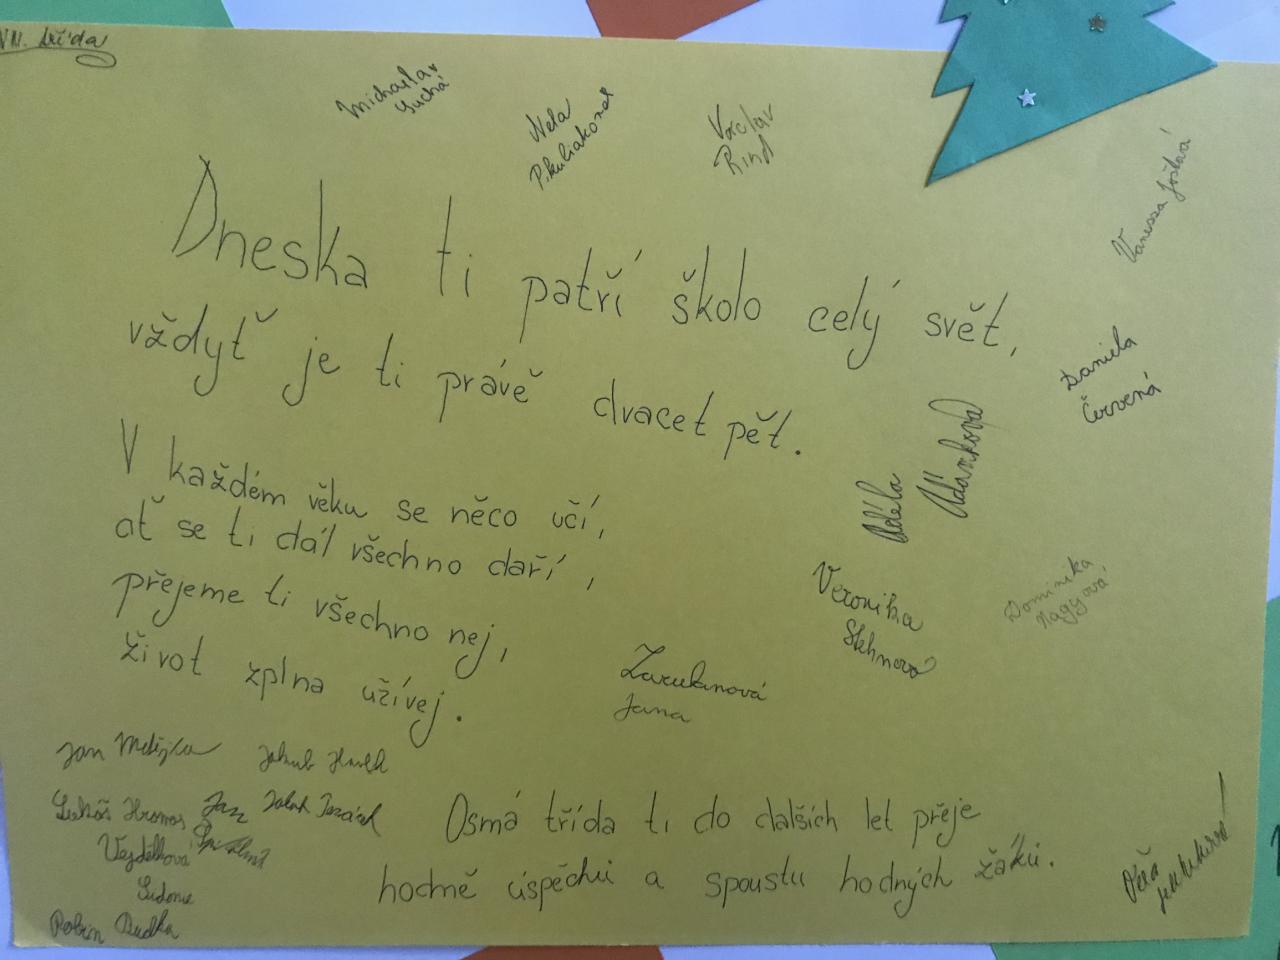 třída
Michaela
Suchá
Nela
Pikuliaková
Václav
Rind
Vanessa Joštová
Dneska ti patří školo celý svět,
vždyť je ti právě dvacet pět.
Daniela
Červená
Adéla
Adámková
V každém věku se něco učí,
ať se ti dál všechno daří,
přejeme ti všechno nej,
život zplna užívej.
Veronika
Dominika
Nagyová
Jana
Jan
Jakub
Lukáš Hromas
Jan
Vejdělková
Sidonie
Robin Dudka
Osmá třída ti do dalších let přeje
hodně úspěchů a spoustu hodných žáků.